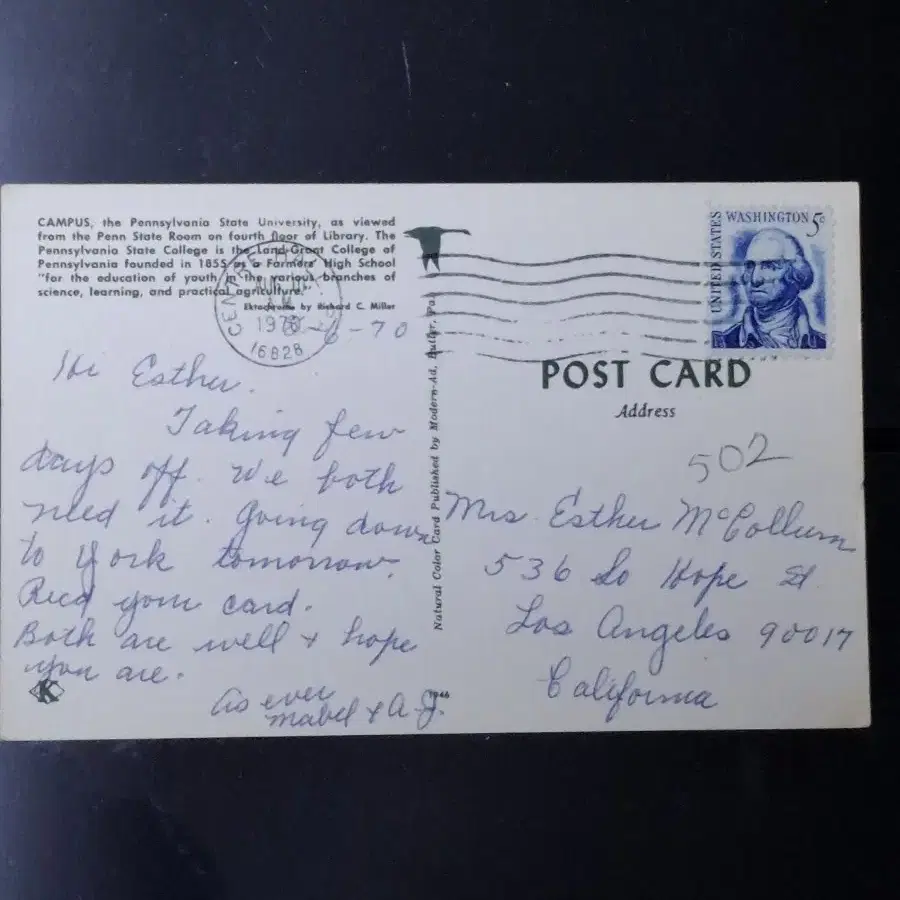 CAMPUS, the Pennsylvania State University, as viewed
from the Penn State Room on fourth floor of Library. The
Pennsylvania State College is the Land-Grant College of
Pennsylvania founded in 1855 as a Farmers' High School
"for the education of youth in the various branches of
science, learning, and practical agriculture."
Ektachrome by Richard C. Miller
1970
16828
6-70
Hi Esther.
Taking few
days off. We both
need it. Going down
to York tomorrow.
Recd your card.
Both are well + hope
you are.
As ever
Mabel & A.J.
K
Natural Color Card Published by Modern-Ad, Butler, Pa.
UNITED STATES
WASHINGTON 5c
POST CARD
Address
502
Mrs. Esther McCollum
536 So Hope St
Los Angeles 90017
California